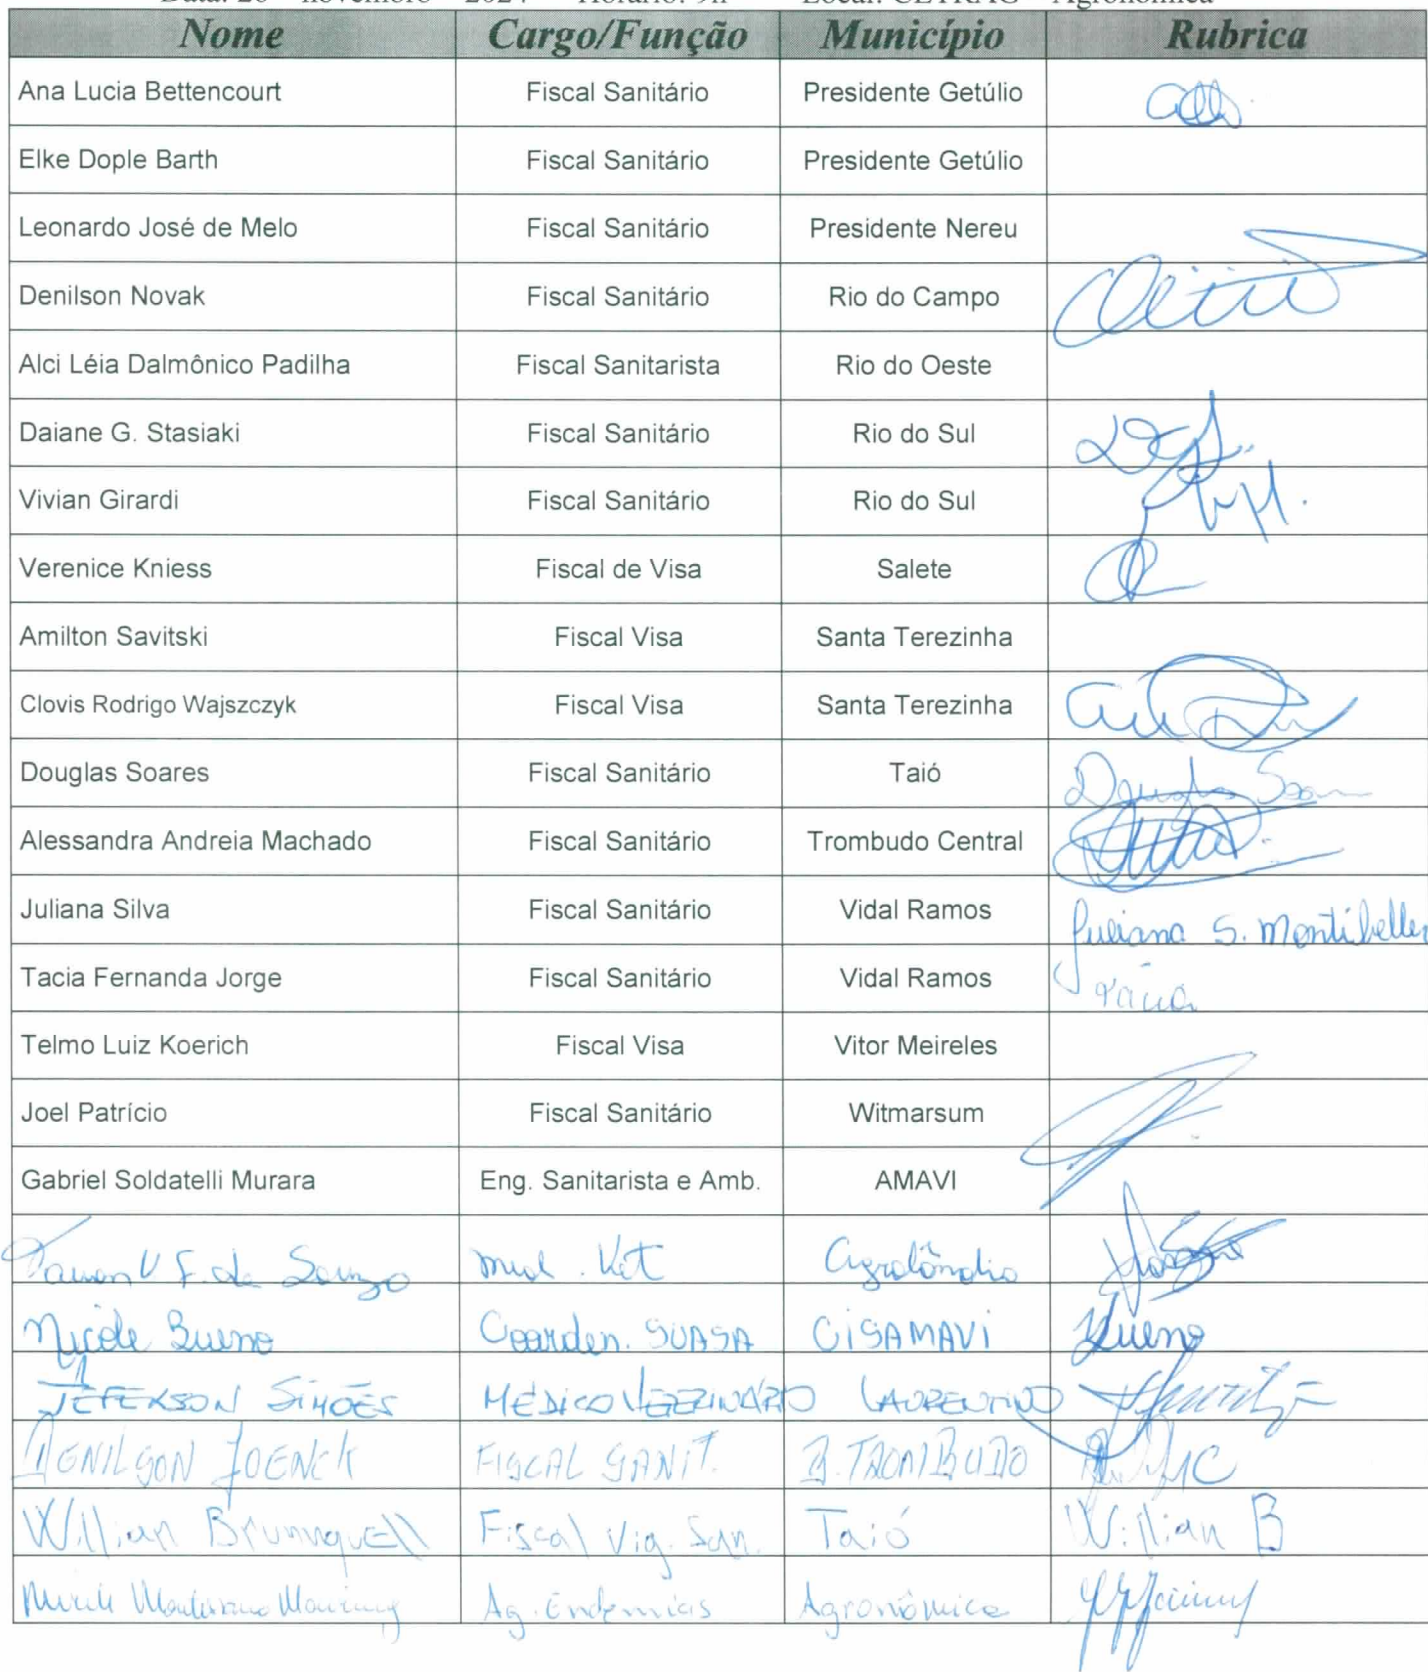 Data: 26 – novembro – 2024 Horário: 9h Local: CETRAG – Agronômica
Nome Cargo/Função Município Rubrica
Ana Lucia Bettencourt Fiscal Sanitário Presidente Getúlio
Elke Dople Barth Fiscal Sanitário Presidente Getúlio
Leonardo José de Melo Fiscal Sanitário Presidente Nereu
Denilson Novak Fiscal Sanitário Rio do Campo
Alci Léia Dalmônico Padilha Fiscal Sanitarista Rio do Oeste
Daiane G. Stasiaki Fiscal Sanitário Rio do Sul
Vivian Girardi Fiscal Sanitário Rio do Sul
Verenice Kniess Fiscal de Visa Salete
Amilton Savitski Fiscal Visa Santa Terezinha
Clovis Rodrigo Wajszczyk Fiscal Visa Santa Terezinha
Douglas Soares Fiscal Sanitário Taió Douglas
Alessandra Andreia Machado Fiscal Sanitário Trombudo Central
Juliana Silva Fiscal Sanitário Vidal Ramos Juliana S. Montibeller
Tacia Fernanda Jorge Fiscal Sanitário Vidal Ramos Tácia
Telmo Luiz Koerich Fiscal Visa Vitor Meireles
Joel Patrício Fiscal Sanitário Witmarsum
Gabriel Soldatelli Murara Eng. Sanitarista e Amb. AMAVI
F. de Souza Med. Vet Agrolândia
Nicole Bueno Coorden. SUASA CISAMAVI Bueno
JEFERSON SIMÕES MÉDICO VETERINÁRIO LAURENTINO
FISCAL SANIT. B. TROMBUDO
Willian Brunnquell Fiscal Vig. San. Taió Willian B
Ag. Endemias Agronômica